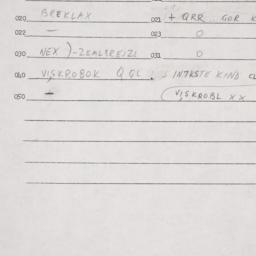 020 BREKLAX 021 + QRR GOR K
022 — 023 O
030 NEX )-ZEALSREIZI 031 O
040 VISKROBOK Q GL : INTKSTE KIND CL
050 — (VISKROBL XX